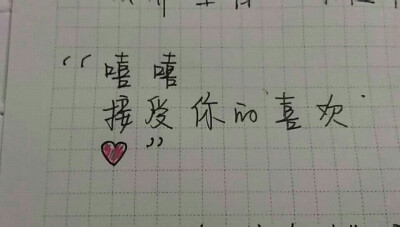 “嘻嘻
接受你的喜欢
♥”